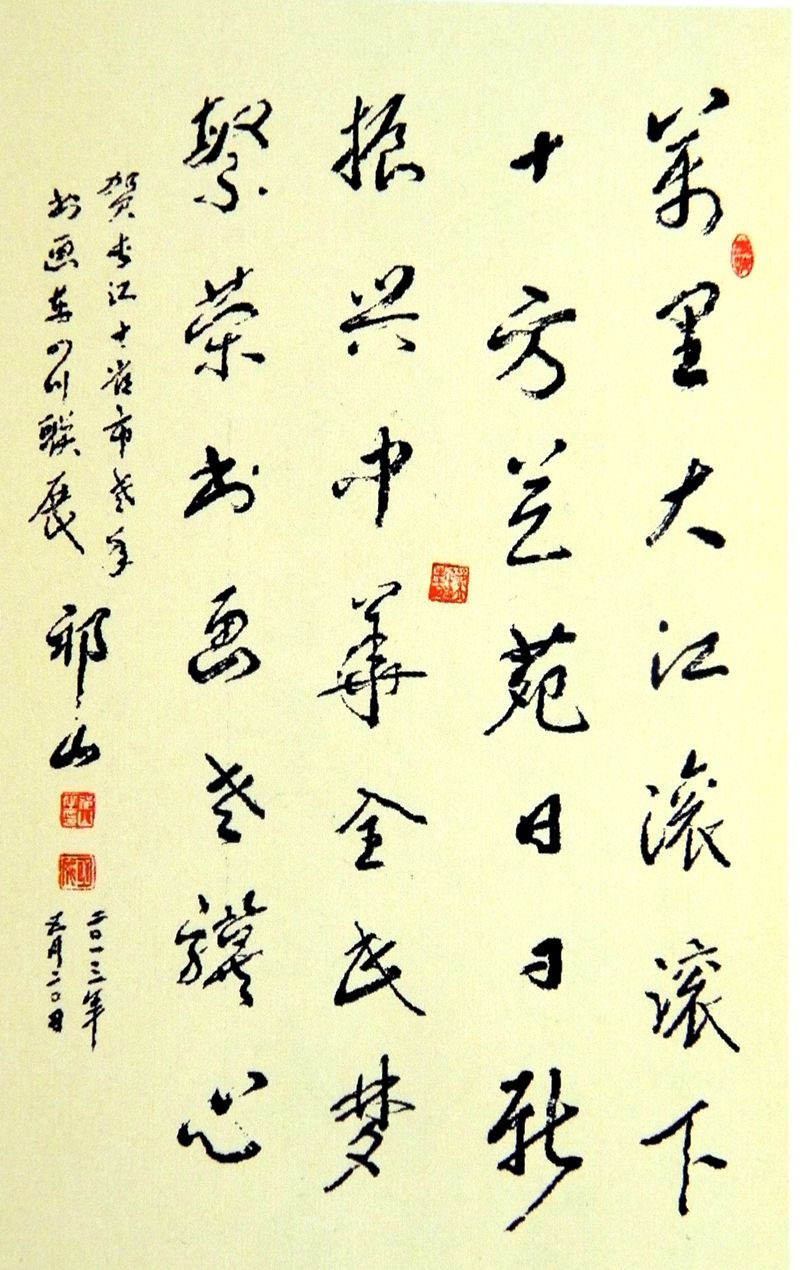 萬里大江滚滚下
十方芝苑日日新
振兴中華全民梦
繁荣书画老骥心
贺长江十省市老年
书画东四川联展
祁山
二〇一三年
五月二〇日